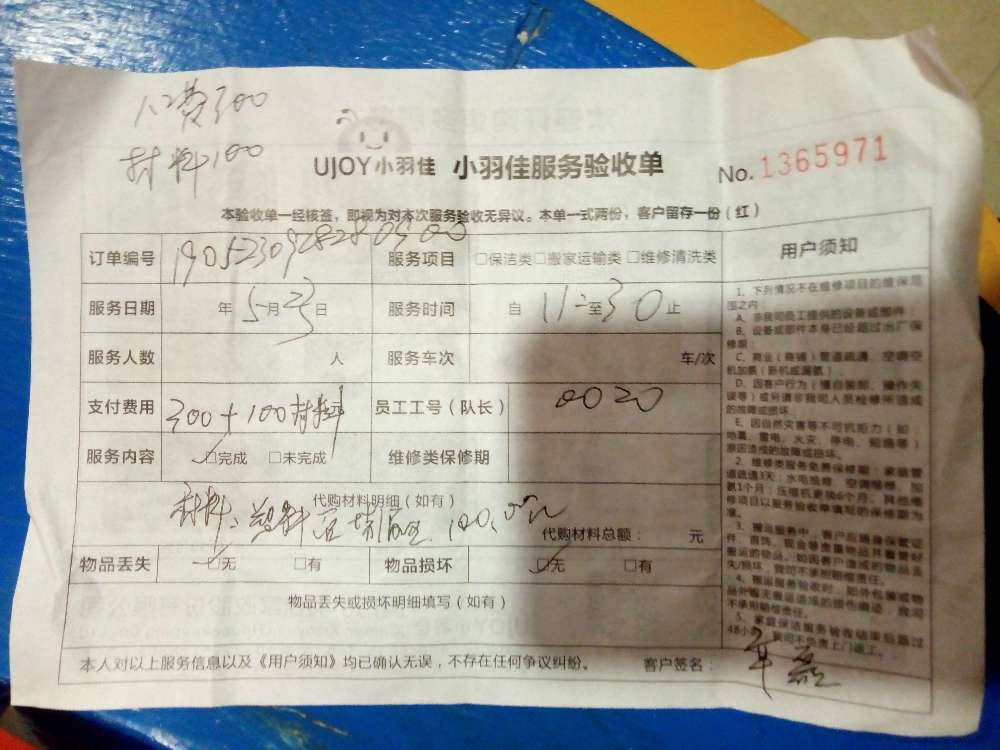 人工费300
材料100
UJOY小羽佳 小羽佳服务验收单 No.1365971
本验收单一经核签，即视为对本次服务验收无异议。本单一式两份，客户留存一份（红）
订单编号 服务项目 □保洁类□搬家运输类□维修清洗类
服务日期 年5月23日 服务时间 自11-至30止
服务人数 人 服务车次 车/次
支付费用 300+100材料 员工工号（队长） 0020
服务内容 □完成 □未完成 维修类保修期
代购材料明细（如有）
材料：塑料
代购材料总额： 元
物品丢失 □无 □有 物品损坏 □无 □有
物品丢失或损坏明细填写（如有）
本人对以上服务信息以及《用户须知》均已确认无误，不存在任何争议纠纷。 客户签名：
用户须知
1、下列情况不在维修项目的维保范
围之内：
A、非我司员工提供的设备或部件；
B、设备或部件本身已经超过出厂保
修期；
C、商业（商铺）管道疏通、空调空
机加氟（新机或漏氟）；
D、因客户行为（擅自装卸、操作失
误等）或另请非我司人员检修所造成
的故障或损坏；
E、因自然灾害等不可机拒力（如：
地震、雷电、火灾、停电、短路等）
原因造成的故障或损坏。
2、维修类服务免费保修期：家庭管
道疏通3天；水电维修、空调维修、加
氟1个月；压缩机更换6个月。其他维
修项目以服务验收单填写的保修期为
准。
3、搬运服务中，客户应随身保管证
件、首饰、现金等贵重物品并看管好
搬运的物品。如因客户造成的物品丢
失/损坏，我司不承担赔偿责任。
4、搬运服务验收时，如外包装或物
品外观无善造成的损伤痕迹，我司
不承担赔偿责任。
5、家庭保洁服务验收结束后超过
48小时，我司不负责上门返工。